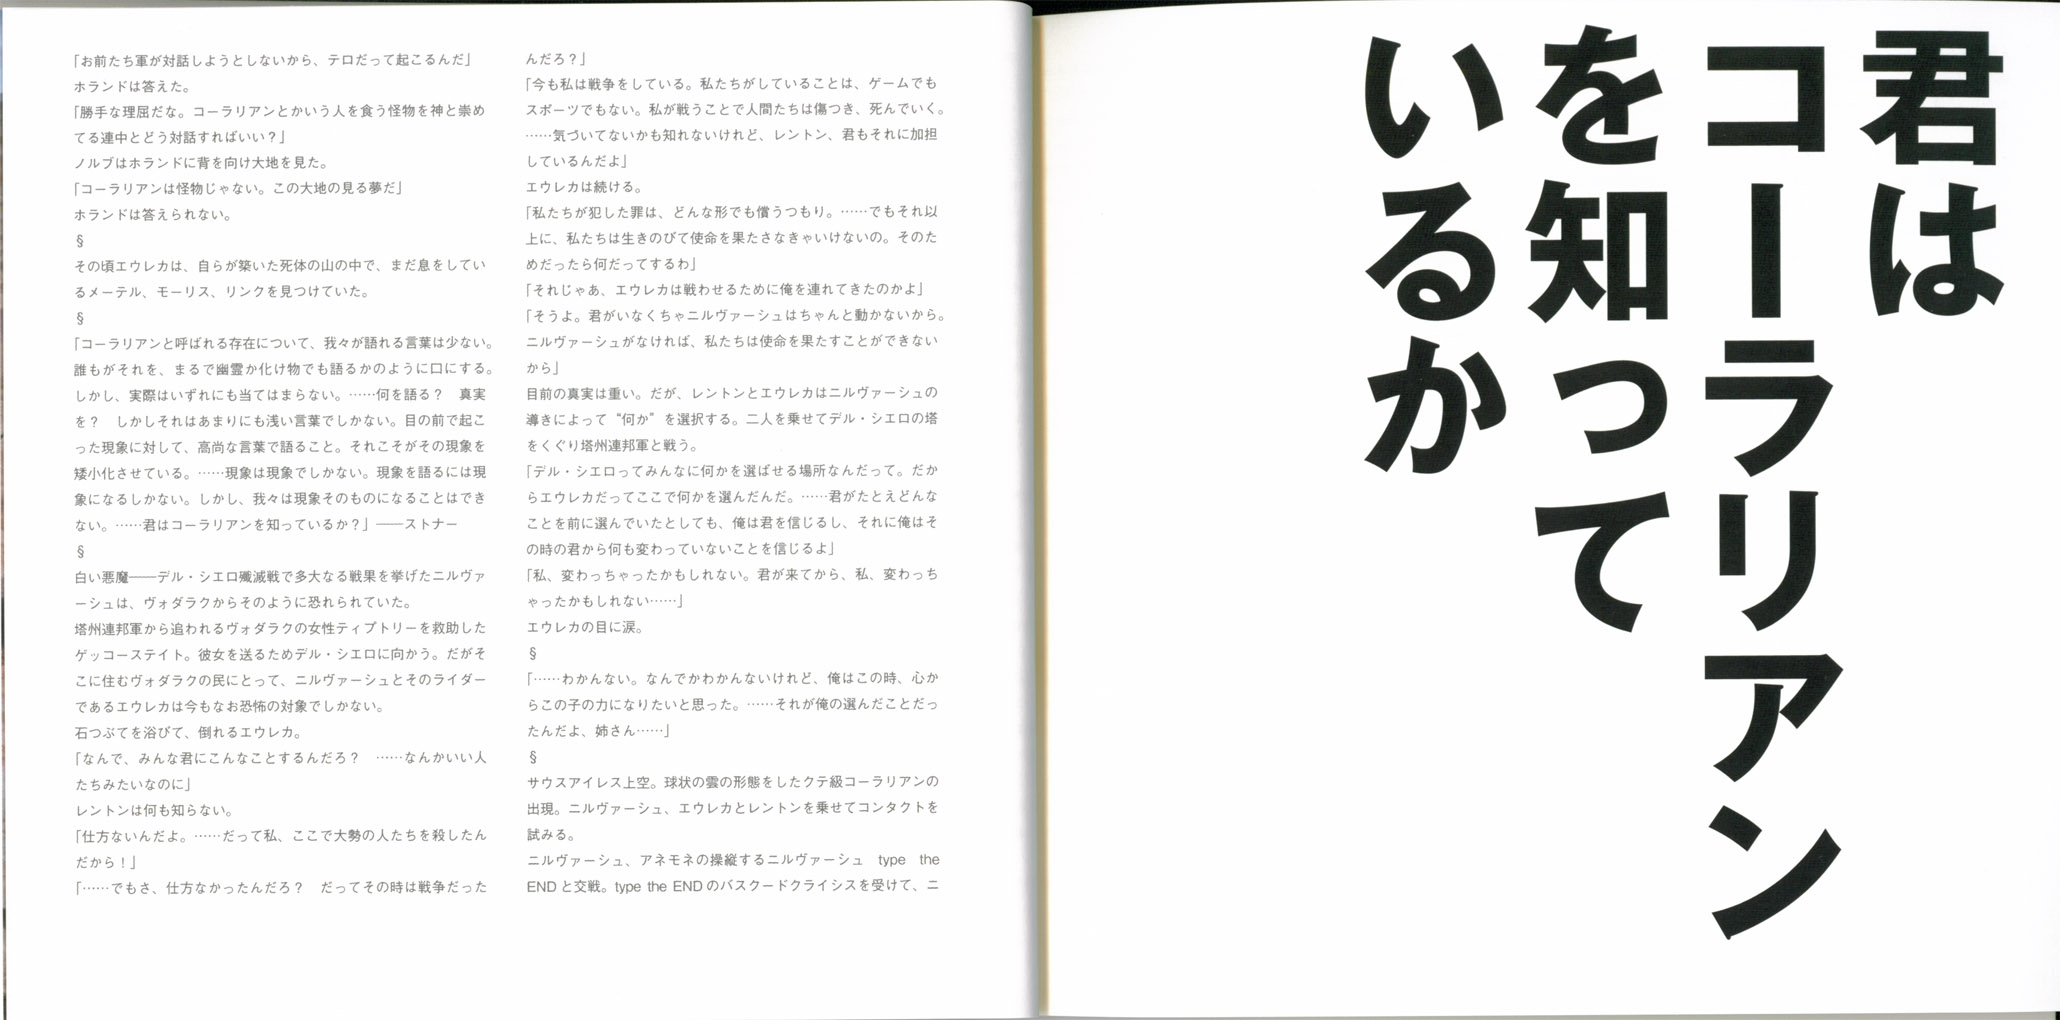 「お前たち軍が対話しようとしないから、テロだって起こるんだ」
ホランドは答えた。
「勝手な理屈だな。コーラリアンとかいう人を食う怪物を神と崇め
てる連中とどう対話すればいい？」
ノルブはホランドに背を向け大地を見た。
「コーラリアンは怪物じゃない。この大地の見る夢だ」
ホランドは答えられない。
§
その頃エウレカは、自らが築いた死体の山の中で、まだ息をしてい
るメーテル、モーリス、リンクを見つけていた。
§
「コーラリアンと呼ばれる存在について、我々が語れる言葉は少ない。
誰もがそれを、まるで幽霊か化け物でも語るかのように口にする。
しかし、実際はいずれにも当てはまらない。……何を語る？　真実
を？　しかしそれはあまりにも浅い言葉でしかない。目の前で起こ
った現象に対して、高尚な言葉で語ること。それこそがその現象を
矮小化させている。……現象は現象でしかない。現象を語るには現
象になるしかない。しかし、我々は現象そのものになることはでき
ない。……君はコーラリアンを知っているか？」――ストナー
§
白い悪魔――デル・シエロ殲滅戦で多大なる戦果を挙げたニルヴァ
ーシュは、ヴォダラクからそのように恐れられていた。
塔州連邦軍から追われるヴォダラクの女性ティプトリーを救助した
ゲッコーステイト。彼女を送るためデル・シエロに向かう。だがそ
こに住むヴォダラクの民にとって、ニルヴァーシュとそのライダー
であるエウレカは今もなお恐怖の対象でしかない。
石つぶてを浴びて、倒れるエウレカ。
「なんで、みんな君にこんなことするんだろ？　……なんかいい人
たちみたいなのに」
レントンは何も知らない。
「仕方ないんだよ。……だって私、ここで大勢の人たちを殺したん
だから！」
「……でもさ、仕方なかったんだろ？　だってその時は戦争だった
んだろ？」
「今も私は戦争をしている。私たちがしていることは、ゲームでも
スポーツでもない。私が戦うことで人間たちは傷つき、死んでいく。
……気づいてないかも知れないけれど、レントン、君もそれに加担
しているんだよ」
エウレカは続ける。
「私たちが犯した罪は、どんな形でも償うつもり。……でもそれ以
上に、私たちは生きのびて使命を果たさなきゃいけないの。そのた
めだったら何だってするわ」
「それじゃあ、エウレカは戦わせるために俺を連れてきたのかよ」
「そうよ。君がいなくちゃニルヴァーシュはちゃんと動かないから。
ニルヴァーシュがなければ、私たちは使命を果たすことができない
から」
目前の真実は重い。だが、レントンとエウレカはニルヴァーシュの
導きによって“何か”を選択する。二人を乗せてデル・シエロの塔
をくぐり塔州連邦軍と戦う。
「デル・シエロってみんなに何かを選ばせる場所なんだって。だか
らエウレカだってここで何かを選んだんだ。……君がたとえどんな
ことを前に選んでいたとしても、俺は君を信じるし、それに俺はそ
の時の君から何も変わっていないことを信じるよ」
「私、変わっちゃったかもしれない。君が来てから、私、変わっち
ゃったかもしれない……」
エウレカの目に涙。
§
「……わかんない。なんでかわかんないけれど、俺はこの時、心か
らこの子の力になりたいと思った。……それが俺の選んだことだっ
たんだよ、姉さん……」
§
サウスアイレス上空。球状の雲の形態をしたクテ級コーラリアンの
出現。ニルヴァーシュ、エウレカとレントンを乗せてコンタクトを
試みる。
ニルヴァーシュ、アネモネの操縦するニルヴァーシュ　type　the
ENDと交戦。type the ENDのバスクードクライシスを受けて、ニ
君は
コーラリアン
を知って
いるか